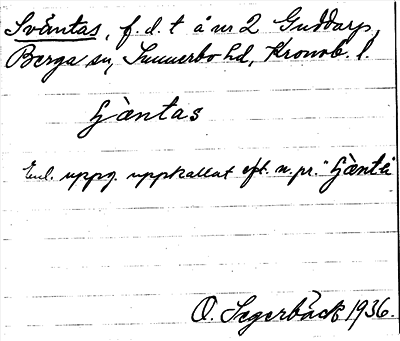 Sväntas, f. d. t å nr 2 Guddarp,
Berga sn, Sunnerbo hd, Kronob. l.
Enl. uppg. uppkallat eft. n. pr.
O. Segerbäck 1936.